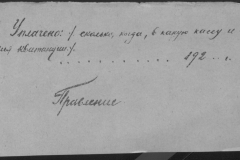 Уплачено: /. сколько, когда, в какую кассу и
квитанции /.
. . . . . . . . . . . 192... г.
Правление